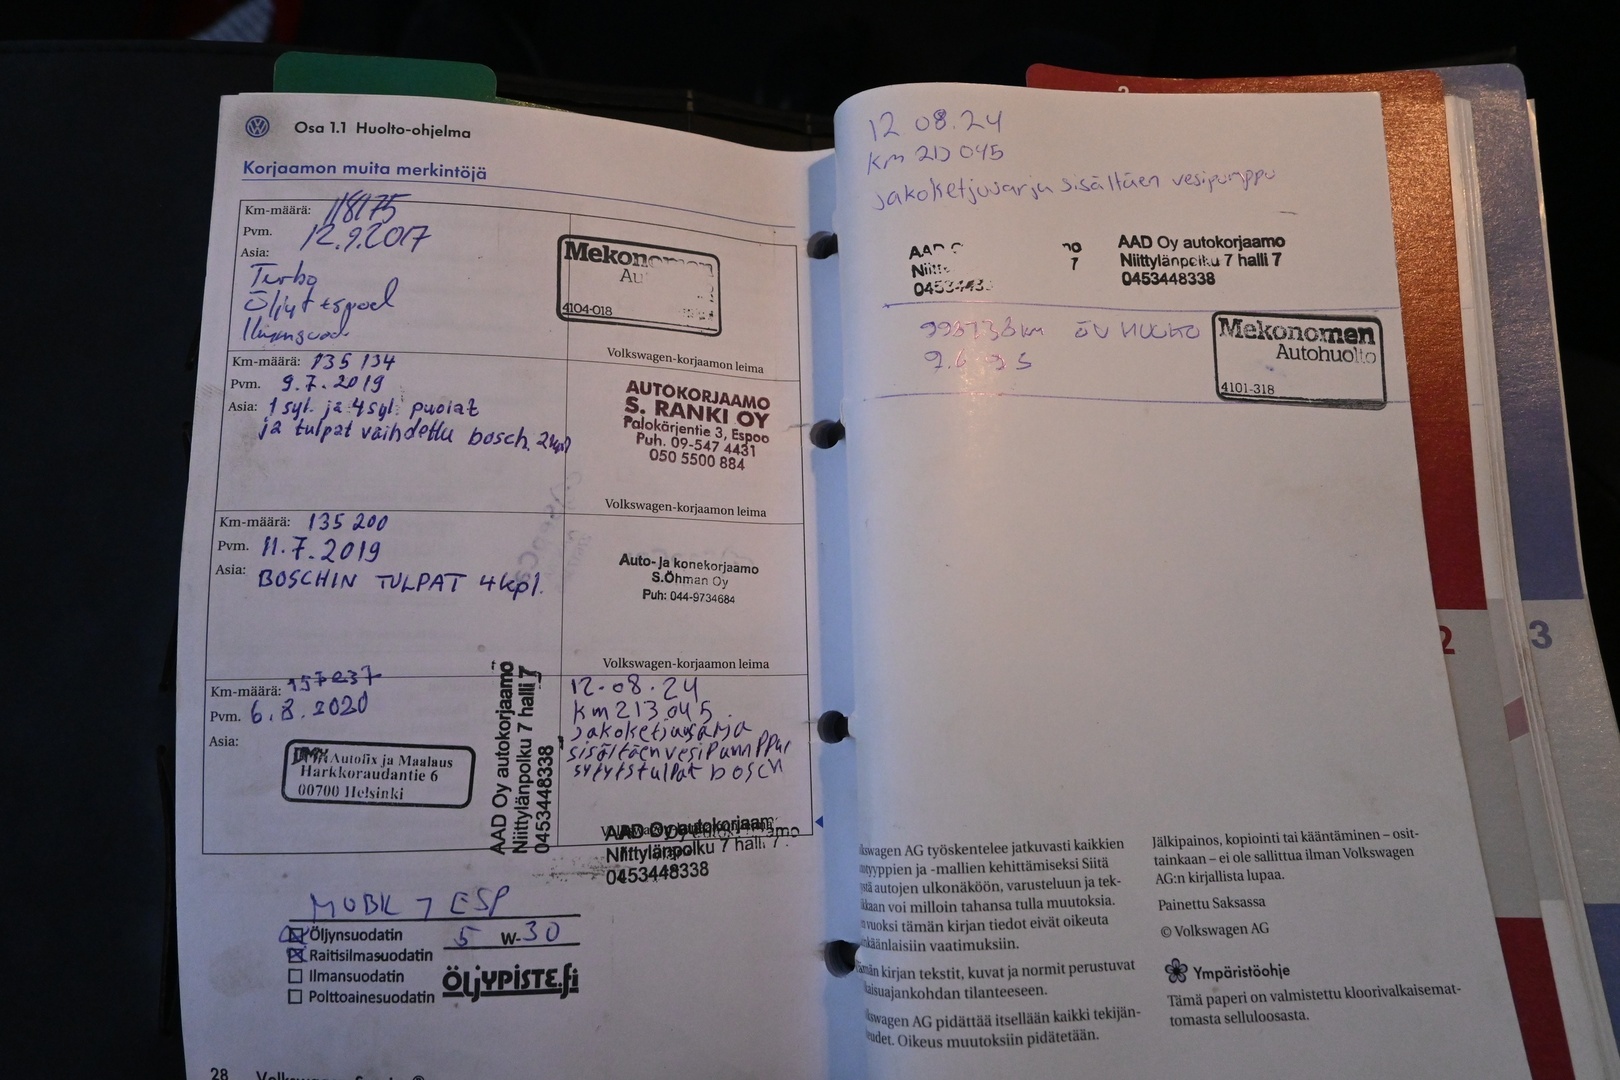 Osa 1.1 Huolto-ohjelma
Korjaamon muita merkintöjä
Km-määrä: 118175
Pvm. 12.9.2017
Asia:
Turbo
Öljyt
Mekonomen
Au
4104-018
Volkswagen-korjaamon leima
Km-määrä: 135 134
Pvm. 9.7.2019
Asia: 1 syl. ja 4 syl. puolat
ja tulpat vaihdettu bosch. 2kpl
AUTOKORJAAMO
S. RANKI OY
Palokärjentie 3, Espoo
Puh. 09-547 4431
050 5500 884
Volkswagen-korjaamon leima
Km-määrä: 135 200
Pvm. 11.7.2019
Asia: BOSCHIN TULPAT 4kpl.
Auto- ja konekorjaamo
S.Öhman Oy
Puh: 044-9734684
Volkswagen-korjaamon leima
Km-määrä: 157237
Pvm. 6.8.2020
Asia:
Autofix ja Maalaus
Harkkoraudantie 6
00700 Helsinki
AAD Oy autokorjaamo
Niittylänpolku 7 halli 7
0453448338
12.08.24
km 213 045
jakoketjusarja
sisältäen vesipumppu
sytytstulpat bosch
AAD Oy autokorjaam
Niittylänpolku 7 halli 7
0453448338
MOBIL 1 ESP
Öljynsuodatin 5 W-30
Raitisilmasuodatin
Ilmansuodatin
Polttoainesuodatin
ÖLJYPISTE.fi
28
12 08.24
km 213 045
jakoketjusarja sisältäen vesipumppu
AAD
Niitt
AAD Oy autokorjaamo
Niittylänpolku 7 halli 7
0453448338
km ÖV HUOLTO
Mekonomen
Autohuolto
4101-318
kswagen AG työskentelee jatkuvasti kaikkien
tyyppien ja -mallien kehittämiseksi Siitä
autojen ulkonäköön, varusteluun ja tek-
voi milloin tahansa tulla muutoksia.
vuoksi tämän kirjan tiedot eivät oikeuta
vaatimuksiin.
kirjan tekstit, kuvat ja normit perustuvat
tilanteeseen.
swagen AG pidättää itsellään kaikki tekijän-
eudet. Oikeus muutoksiin pidätetään.
Jälkipainos, kopiointi tai kääntäminen – osit-
tainkaan – ei ole sallittua ilman Volkswagen
AG:n kirjallista lupaa.
Painettu Saksassa
© Volkswagen AG
Ympäristöohje
Tämä paperi on valmistettu kloorivalkaisemat-
tomasta selluloosasta.
2
3